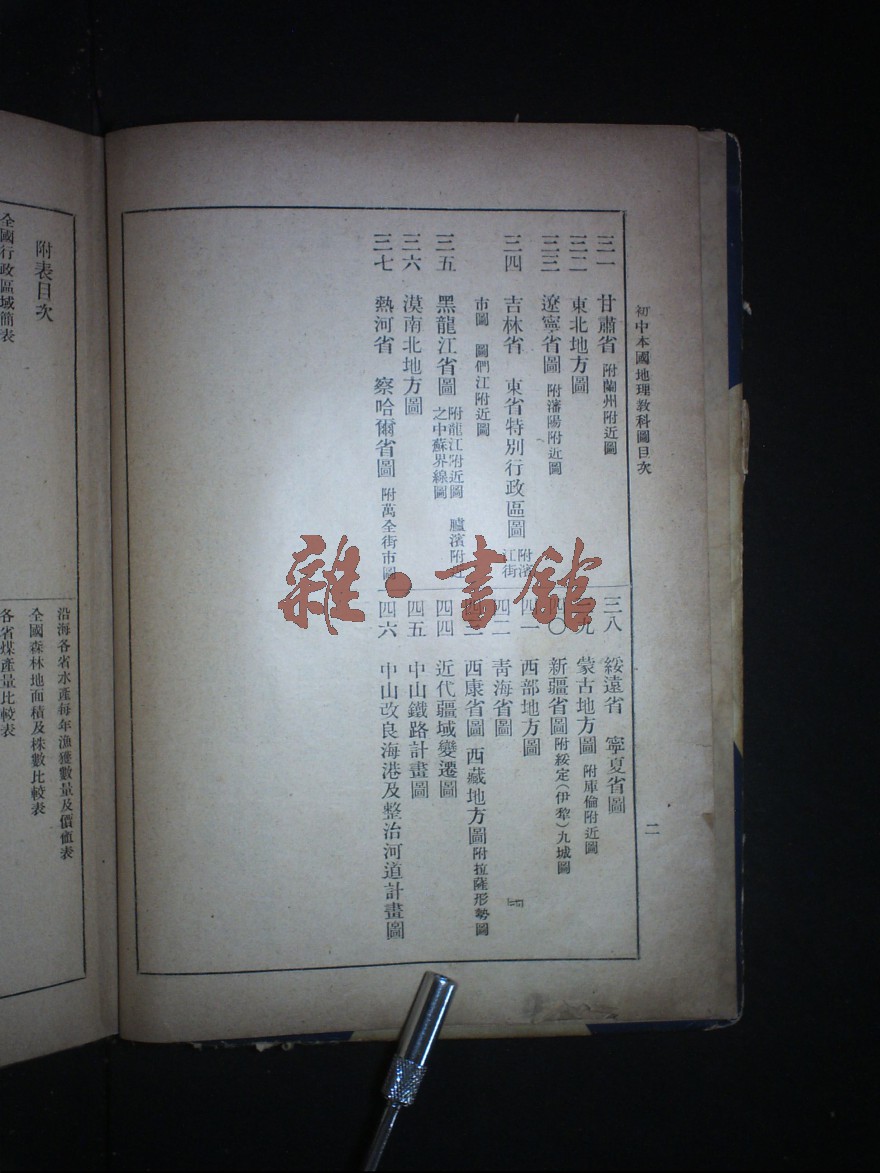 初中本國地理教科圖目次
二
三一 甘肅省 附蘭州附近圖
三二 東北地方圖
三三 遼寧省圖 附瀋陽附近圖
三四 吉林省 東省特別行政區圖 附濱
江街
市圖 圖們江附近圖
三五 黑龍江省圖 附龍江附近圖 臚濱附近
之中蘇界線圖
三六 漠南北地方圖
三七 熱河省 察哈爾省圖 附萬全街市圖
三八 綏遠省 寧夏省圖
九 蒙古地方圖 附庫倫附近圖
四〇 新疆省圖 附綏定(伊犂)九城圖
四一 西部地方圖
四二 青海省圖
四三 西康省圖 西藏地方圖 附拉薩形勢圖
四四 近代疆域變遷圖
四五 中山鐵路計畫圖
四六 中山改良海港及整治河道計畫圖
雜·書館
附表目次
全國行政區域簡表
沿海各省水產每年漁獲數量及價值表
全國森林地面積及株數比較表
各省煤產量比較表